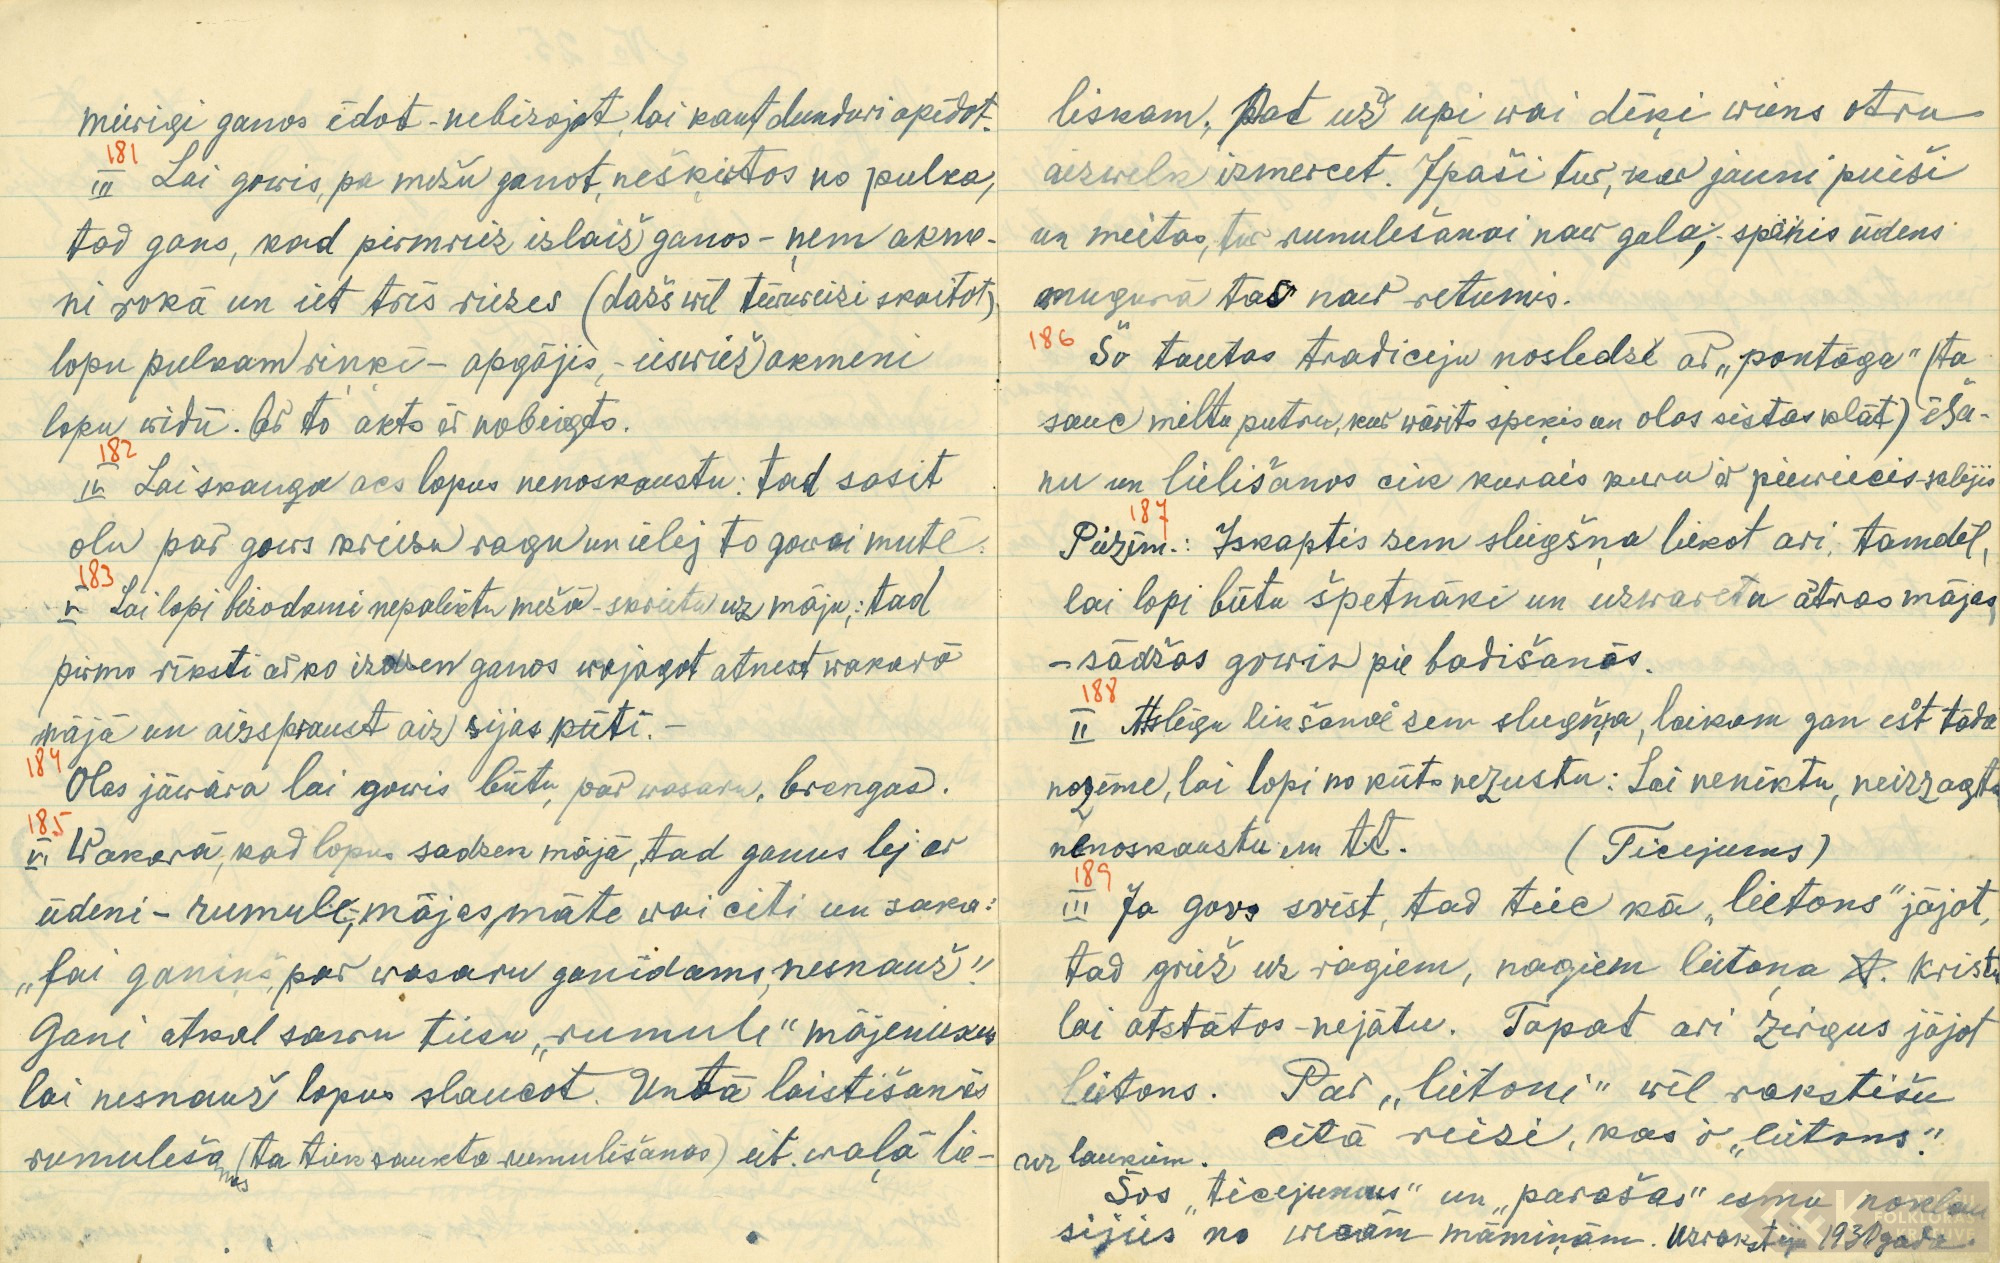 mierigi ganos ēdot - nebizojot, lai kaut dunduri apēdot.
181
III Lai gowis, pa mežu ganot, nešķirtos no pulka,
tad gans, kad pirmreiz izlaiž ganos - ņem akme-
ni rokā un iet trīs riezes (dažs wēl tēwreizi skaitot)
lopu pulkam rinķī - apgājis, - iesviež akmeni
lopu widū. Ar to akts ir nobeigts.
182
IV Lai skauga acs lopus nenoskaustu: tad sasit
olu par gows kreiso ragu un ielej to gowei mutē.
183
V Lai lopi bizodami nepaliktu mežā - skrietu uz māju,: tad
pirmo rīksti ar ko izdzen ganos wajagot atnest wakarā
mājā un aizspraust aiz sijas kūtī. -
184
Olas jāwāra lai gowis būtu, par wasaru, brangas.
185
VI Wakarā, kad lopus sadzen mājā, tad ganus lej ar
ūdeni - rumulē, mājas māte wai citi un saka:
„lai ganiņš, par wasaru ganīdams, nesnauž"!
Gani atkal sawu tiesu „rumulē" mājeniekus
lai nesnauž lopus slaucot. Un tā laistīšanās
rumulēšanas (ta tiek saukta rumulēšanas) iet waļā lie-
liskam. Pat uz upi wai dīķi wiens otru
aizwelk izmercēt. Īpaši tur, kur jauni puiši
un meitas, tur rumulēšanai naw gala, - spainis ūdens
mugurā tas naw retumis.
186
Šo tautas tradiciju noslēdzē ar „pantāga" (ta
sauc miltu putru, kur wārīts speķis un olas sistas klāt) ēša-
nu un lielīšanos cik kurais kuru ir pieweicis - aplējis
187
Piezīm.: Izkaptis zem sliegšņa liekot arī, tamdēļ,
lai lopi būtu špetnāki un uzwarētu ātras mājas,
- sādžas gowis pie badīšanās.
188
II Atslēgu likšanai zem sliegšņa, laikam gan ešt tāda
nozīme, lai lopi no kūts nezustu: Lai nenīktu, neizzagtu
nenoskaustu un tt. (Ticejums)
189
III Ja govs svīst, tad tiec kā „lietons" jājot,
tad griež uz ragiem, nagiem lietoņa kristu
lai atstātos - nejātu. Tapat arī zirgus jājot
lietons. Par „lietoni" wēl rakstīšu
citā reizi, kas ir „lietons".
uz laukiem.
Šos „ticejumus" un „parašas" esmu noklau
sijies no wecām māmiņām. Uzrakstīju 1930 gadā.